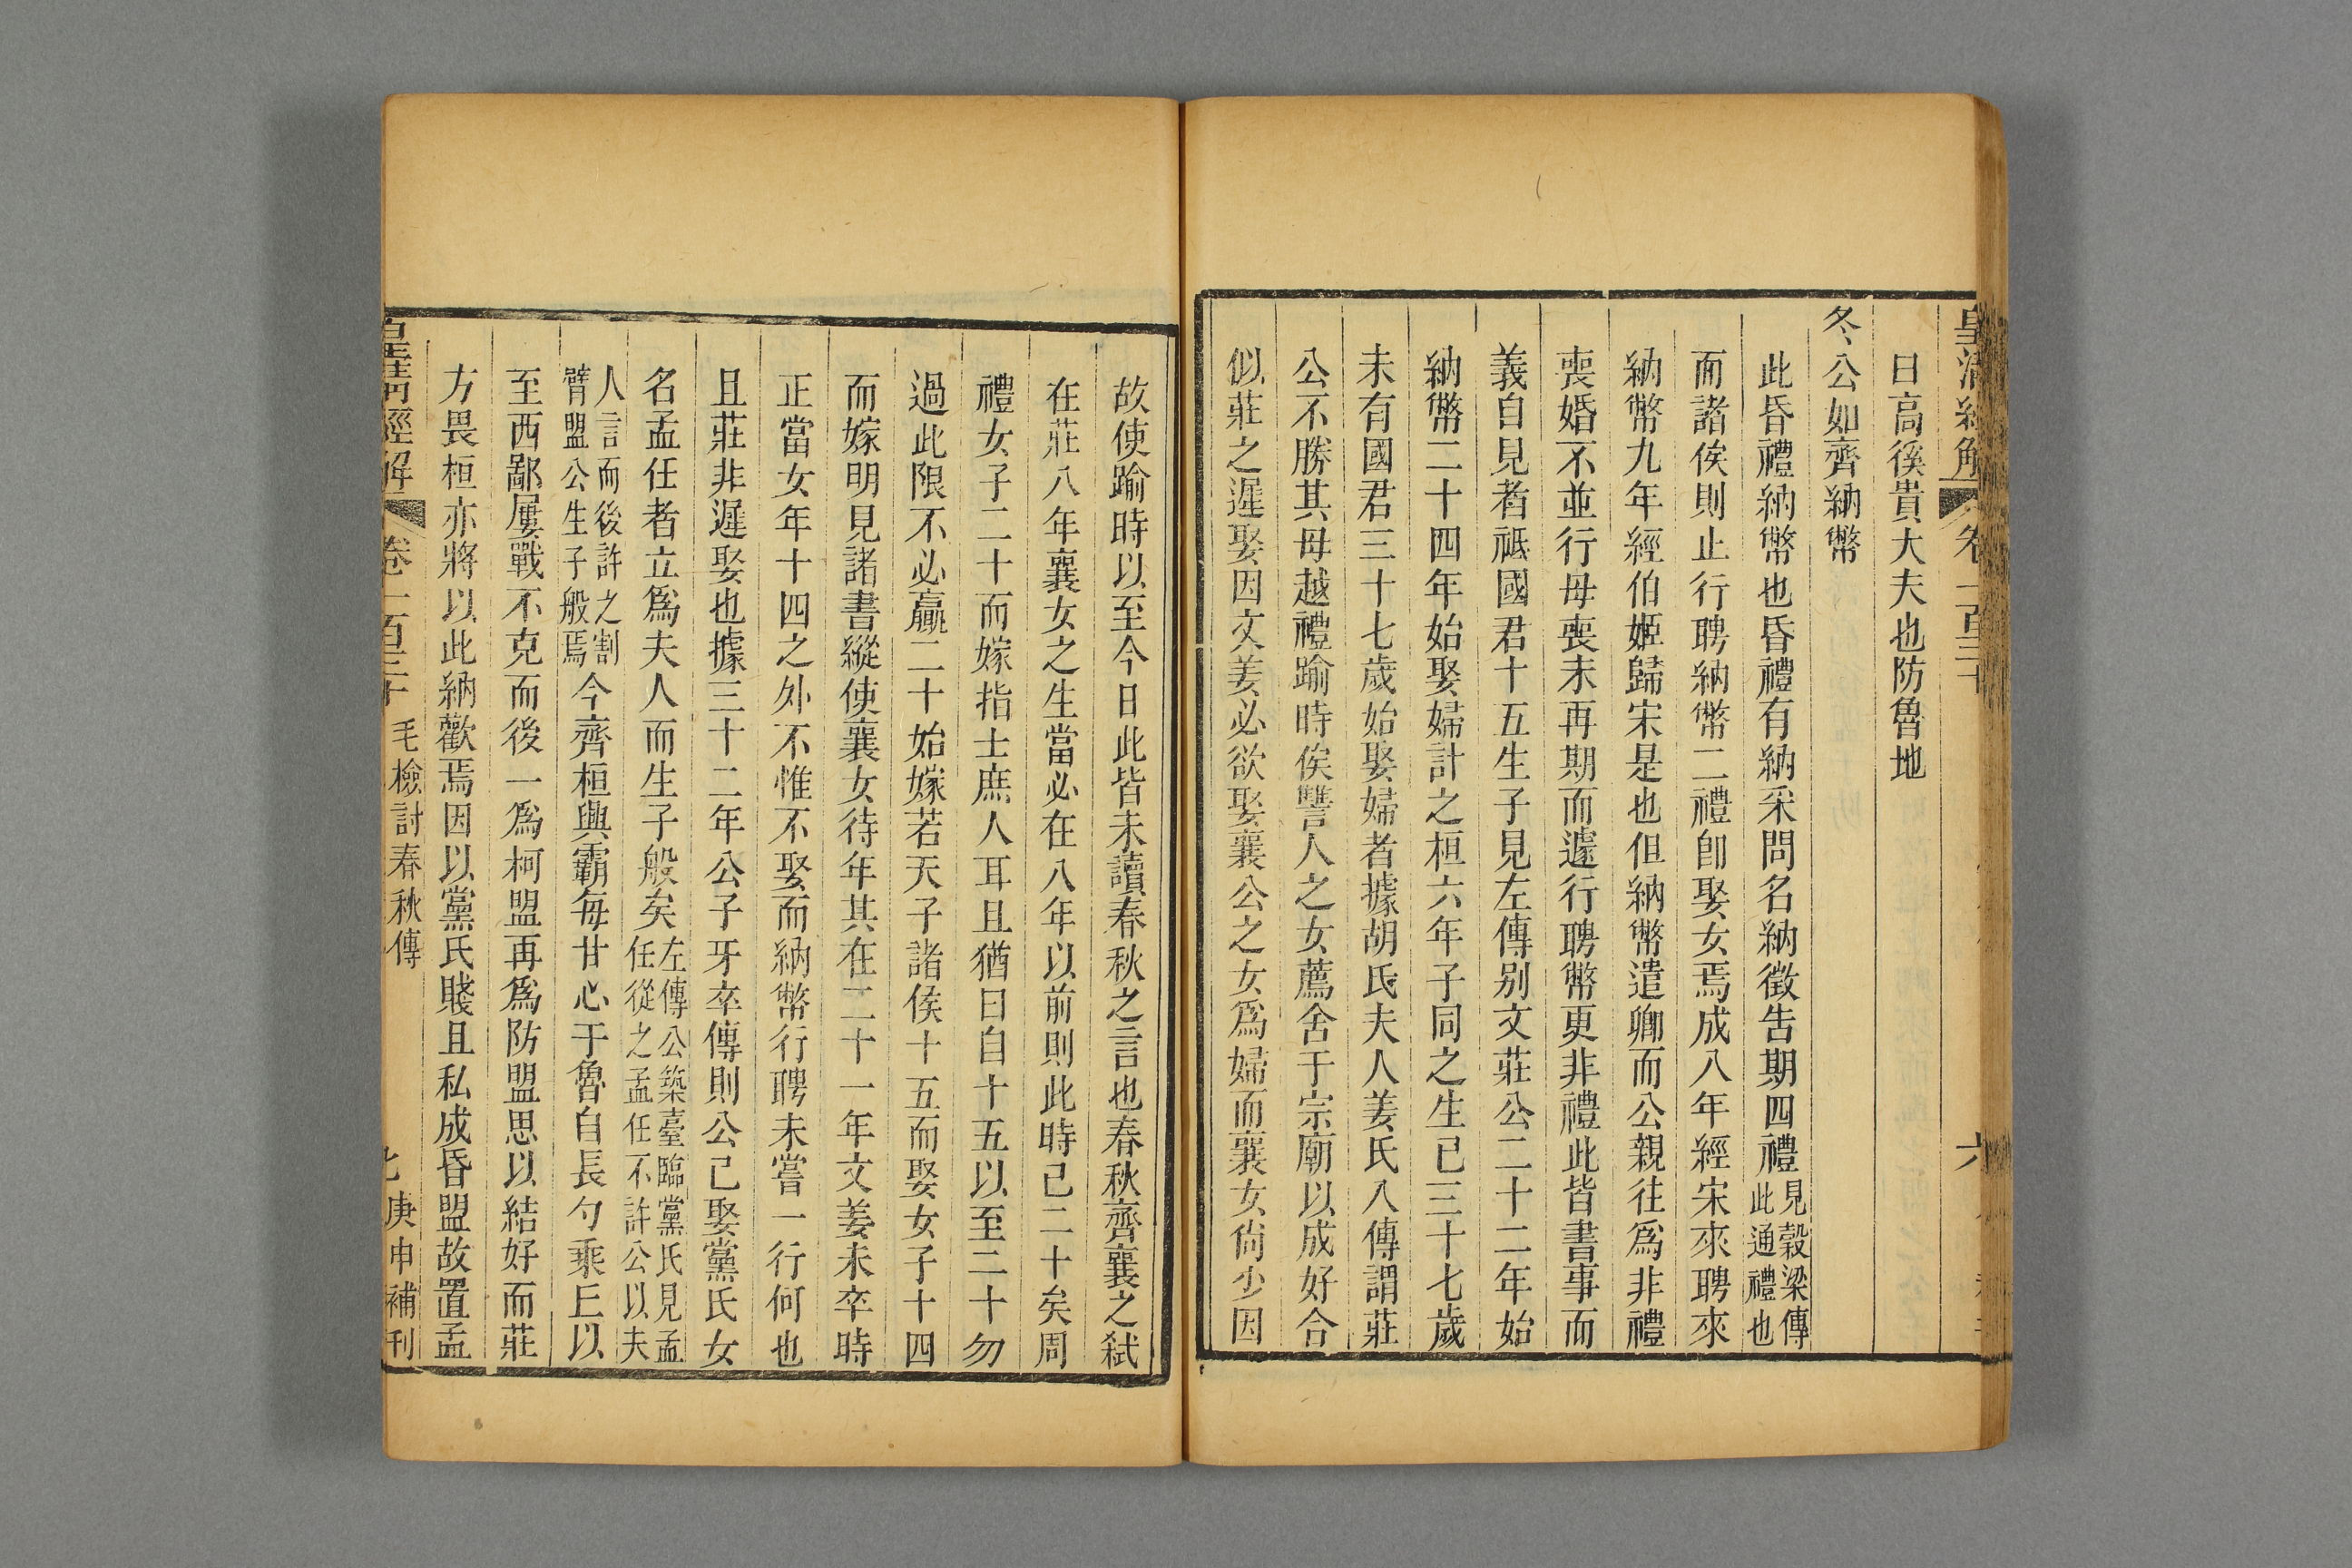 皇清經解 卷一百三十 六
曰高徯貴大夫也防魯地
冬公如齊納幣
此昏禮納幣也昏禮有納采問名納徵告期四禮見穀梁傳此通禮也
而諸侯則止行聘納幣二禮卽娶女焉成八年經宋來聘來
納幣九年經伯姬歸宋是也但納幣遣卿而公親往爲非禮
喪婚不並行母喪未再期而遽行聘幣更非禮此皆書事而
義自見者祗國君十五生子見左傳别文莊公二十二年始
納幣二十四年始娶婦計之桓六年子同之生已三十七歲
未有國君三十七歲始娶婦者據胡氏夫人姜氏入傳謂莊
公不勝其母越禮踰時俟讐人之女薦舍于宗廟以成好合
似莊之遲娶因文姜必欲娶襄公之女爲婦而襄女尙少因
故使踰時以至今日此皆未讀春秋之言也春秋齊襄之弑
在莊八年襄女之生當必在八年以前則此時已二十矣周
禮女子二十而嫁指士庶人耳且猶曰自十五以至二十勿
過此限不必贏二十始嫁若天子諸侯十五而娶女子十四
而嫁明見諸書縱使襄女待年其在二十一年文姜未卒時
正當女年十四之外不惟不娶而納幣行聘未嘗一行何也
且莊非遲娶也據三十二年公子牙卒傳則公已娶黨氏女
名孟任者立爲夫人而生子般矣左傳公築臺臨黨氏見孟任從之孟任不許公以夫
人言而後許之割臂盟公生子般焉今齊桓興霸每甘心于魯自長勺乘丘以
至西鄙屢戰不克而後一爲柯盟再爲防盟思以結好而莊
方畏桓亦將以此納歡焉因以黨氏賤且私成昏盟故置孟
皇淸經解 卷一百二十 毛檢討春秋傳 七 庚申補刊